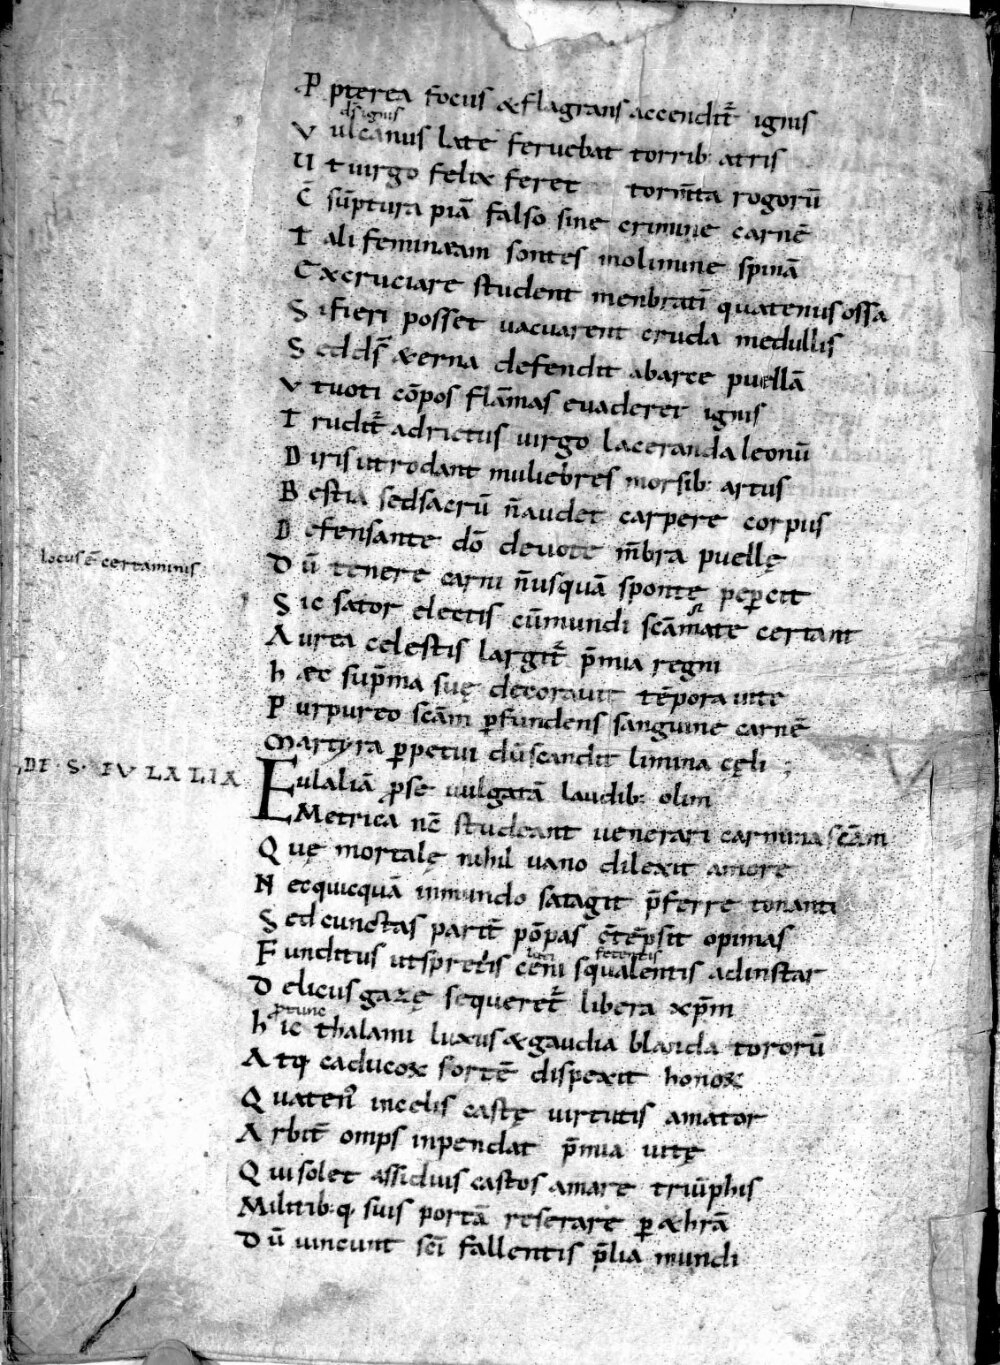 P pterea focus &flagrans accendit̄ ignis
ds ignis
V ulcanus late feruebat torrib: atris
U t uirgo felix ferret torm̄ta rogorū
C̄ sūptura piā falso sine crimine carnē
T ali feminaeam sontes molimine spinā
E xcruciare student menbratī quatenus ossa
S i fieri posset uacuarent cruda medullis
S ed ds̄ &erna defendit abarce puellā
V t uoti cōpos flāmas euaderet ignis
T rudit̄ adrictus uirgo laceranda leonū
D iris ut rodant muliebres morsib: artus
B estia sedsacrū n̄audet carpere corpus
D efensante dō deuote m̄bra puellę
locus ē certaminis
D ū tenere carni n̄usquā sponte pepercit
S ic sator electis cūmundi scāmate certant
A urea celestis largit̄ p̄mia regni
h aec sup̄ma suę decorauit tēpora uite
P urpureo scām pfundens sanguine carnē
Martyra ppetui dūscandit limina cęli ;
DE · S · EULALIA
Eulaliā pse uulgatā laudib: olim
Metrica nc̄ studeant uenerari carmina scām
Q uę mortalę nihil uano dilexit amore
N ecquicquā inmundo satagit p̄ferre tonanti
S ed cunctas parit̄ pōpas c̄tēpsit opimas
luti fetentis
F unditus utspretis ceni squalentis adinstar
D elicus gazę sequeret̄ libera xp̄m
ptune
h ic thalami luxus &gaudia blanda tororū
A tq caducoꝝ sortē dispexit honoꝝ
Q uaten' incelis castę uirtutis amator
A rbit̄ omps inpendat p̄mia uitę
Q ui solet assiduis castos amare triūphis
Militib:q suis portā reserare p &hrā
D ū uincunt scī fallentis p̄lia mundi